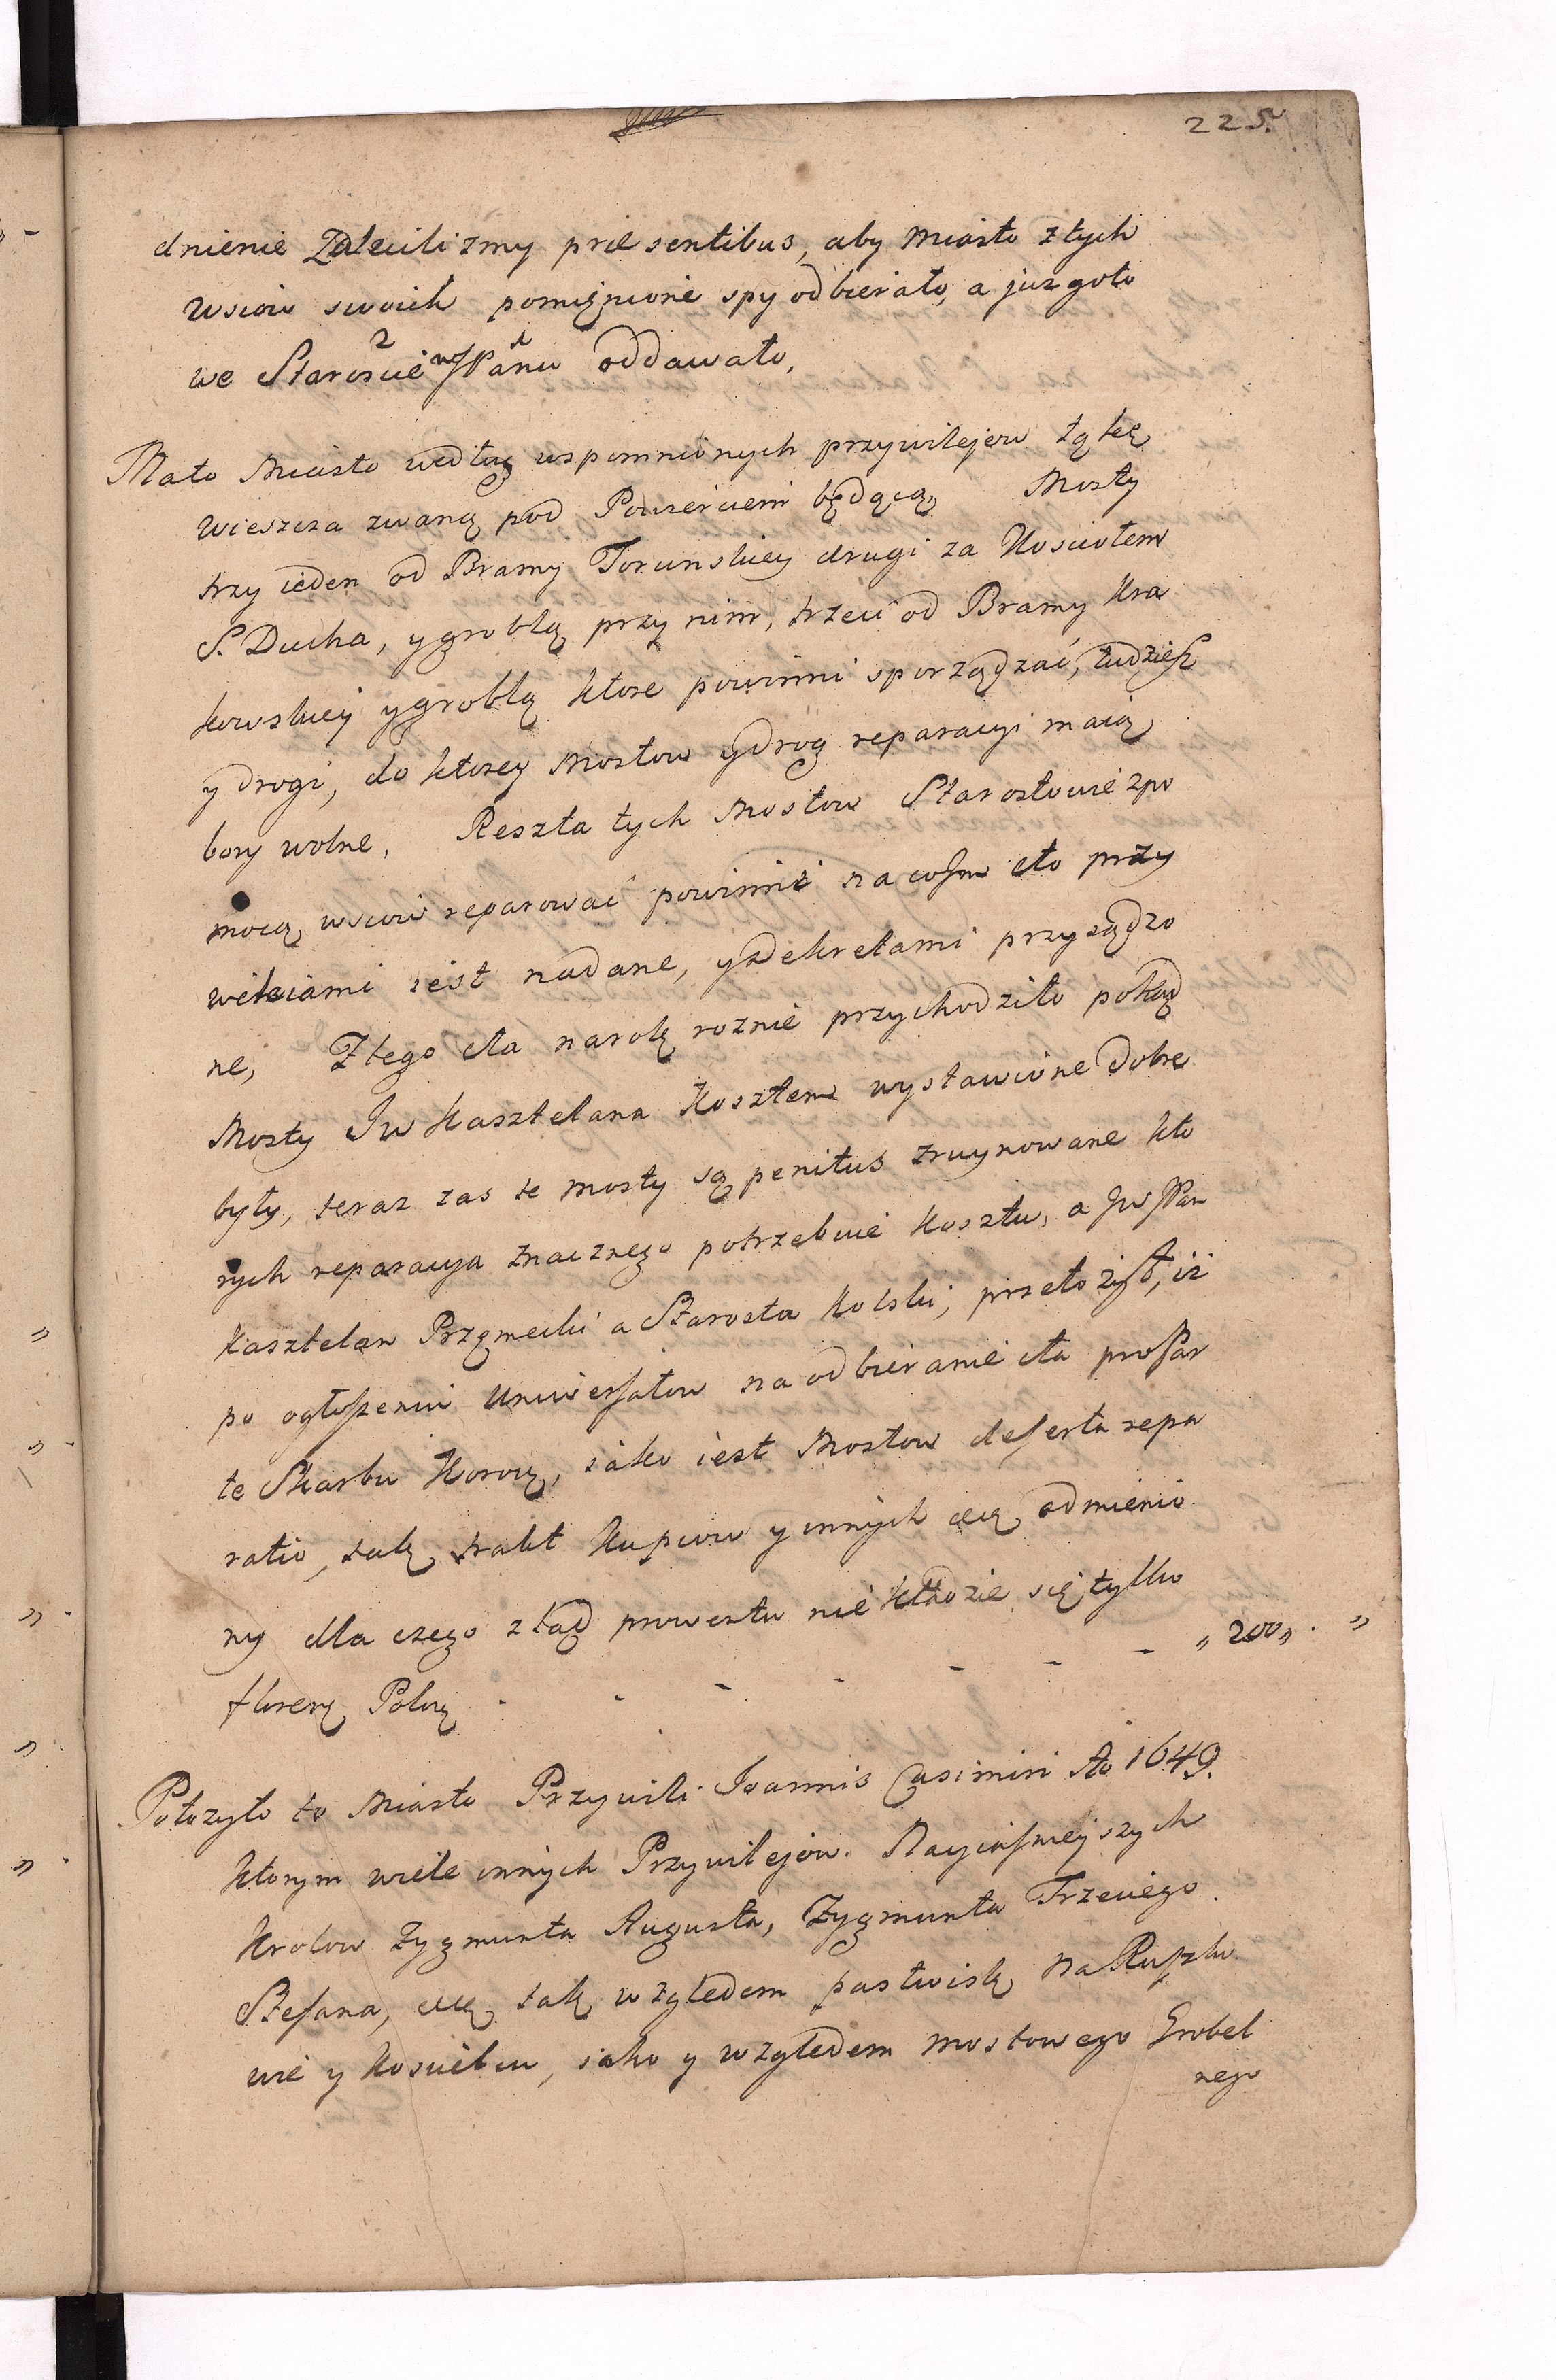 225.
dnienie Zaleciliżmy praesentibus, aby Miasto z tych
wsiow swoich pomienione spy odbierało, a juz goto
we Staroscie Panu oddawało,
Mato Miasto według wspomnionych przywilejow łąkę
Wieszcza zwaną pod Powierciem będącą Mosty
trzy ieden od Bramy Torunskiey drugi za Kosciołem
S. Ducha, y groblą przy nim, trzeci od Bramy Kra
kowskiey y groblą ktore powinni sporządzać, tudzież
y drogi, do ktorey Mostow y drog reparacyi maią
bory wolne, Reszta tych Mostow Starostowie z po
mocą wsiow reparować powinni na co im cło przy
wileiami iest nadane, y dekretami przysądzo
ne, Z tego cła na rok roznie przychodziło pokąd
Mosty Jw Kasztelana Kosztem wystawione dobre
były, teraz zas te mosty są penitus zruynowane kto
rych reparacya znacznego potrzebuie kosztu, a Jw Pan
Kasztelan Przemecki a Starosta Kolski, przełożył, iż
po ogłoszeniu Uniwersałow na odbieranie cła pro Par
te Skarbu Koronę, iako iest Mostow deserta repa
ratio, tak trakt Kupcow y innych odmienio
ny dla czego ztąd prowentu nie kładzie się tylko
floreny Polskę - - - - - - - „ 200 „ · „
Położyło to Miasto Przywili Joannis Casimiri Ao 1649.
ktorym wiele innych Przywilejow. Nayiasnieyszych
Krolow Zygmunta Augusta, Zygmunta Trzeciego.
Stefana, tak względem pastwisk na Ruszko
wie y Koscielcu, iako y względem mostowego Grobel
nego